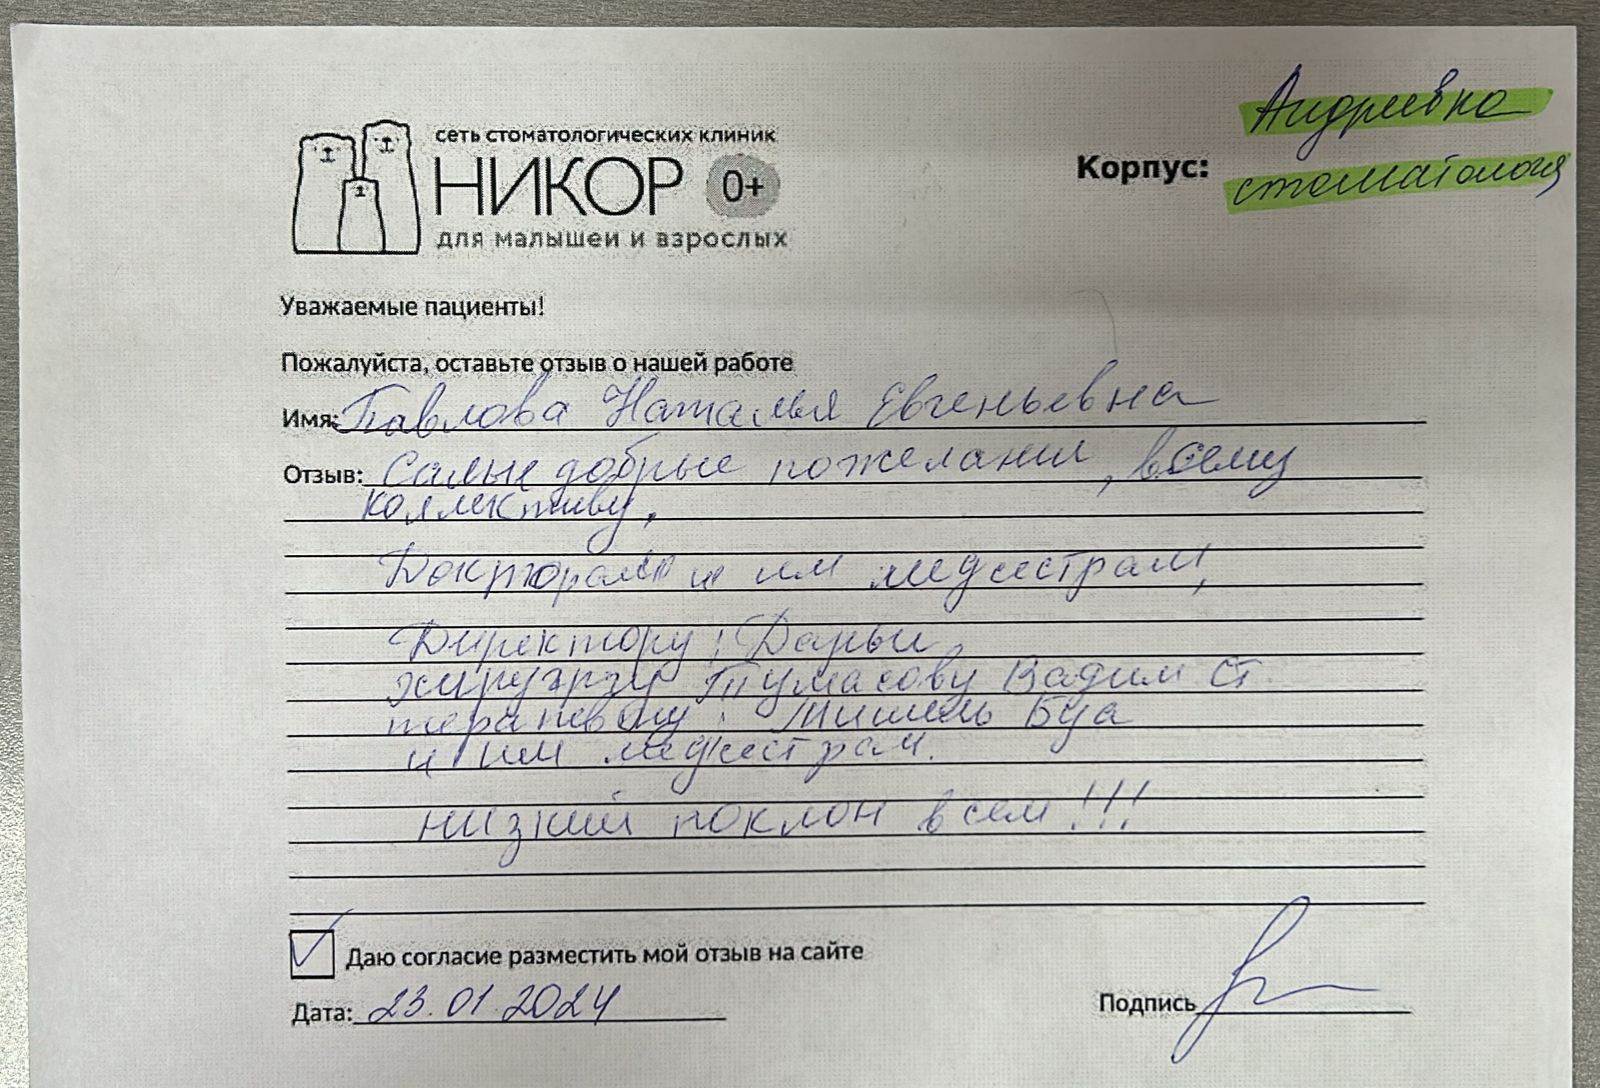 сеть стоматологических клиник
НИКОР 0+
для малышей и взрослых
Корпус: Андреевка
стоматология
Уважаемые пациенты!
Пожалуйста, оставьте отзыв о нашей работе
Имя: Павлова Наталья Евгеньевна
Отзыв: Самые добрые пожелания, всему
коллективу,
Докторам и им медсестрам,
Директору: Дарьи,
хирургу Тумасову Вадим Ст.
терапевту: Мишель Буа
и им медсестрам.
низкий поклон всем!!!
Даю согласие разместить мой отзыв на сайте
Дата: 23.01.2024
Подпись